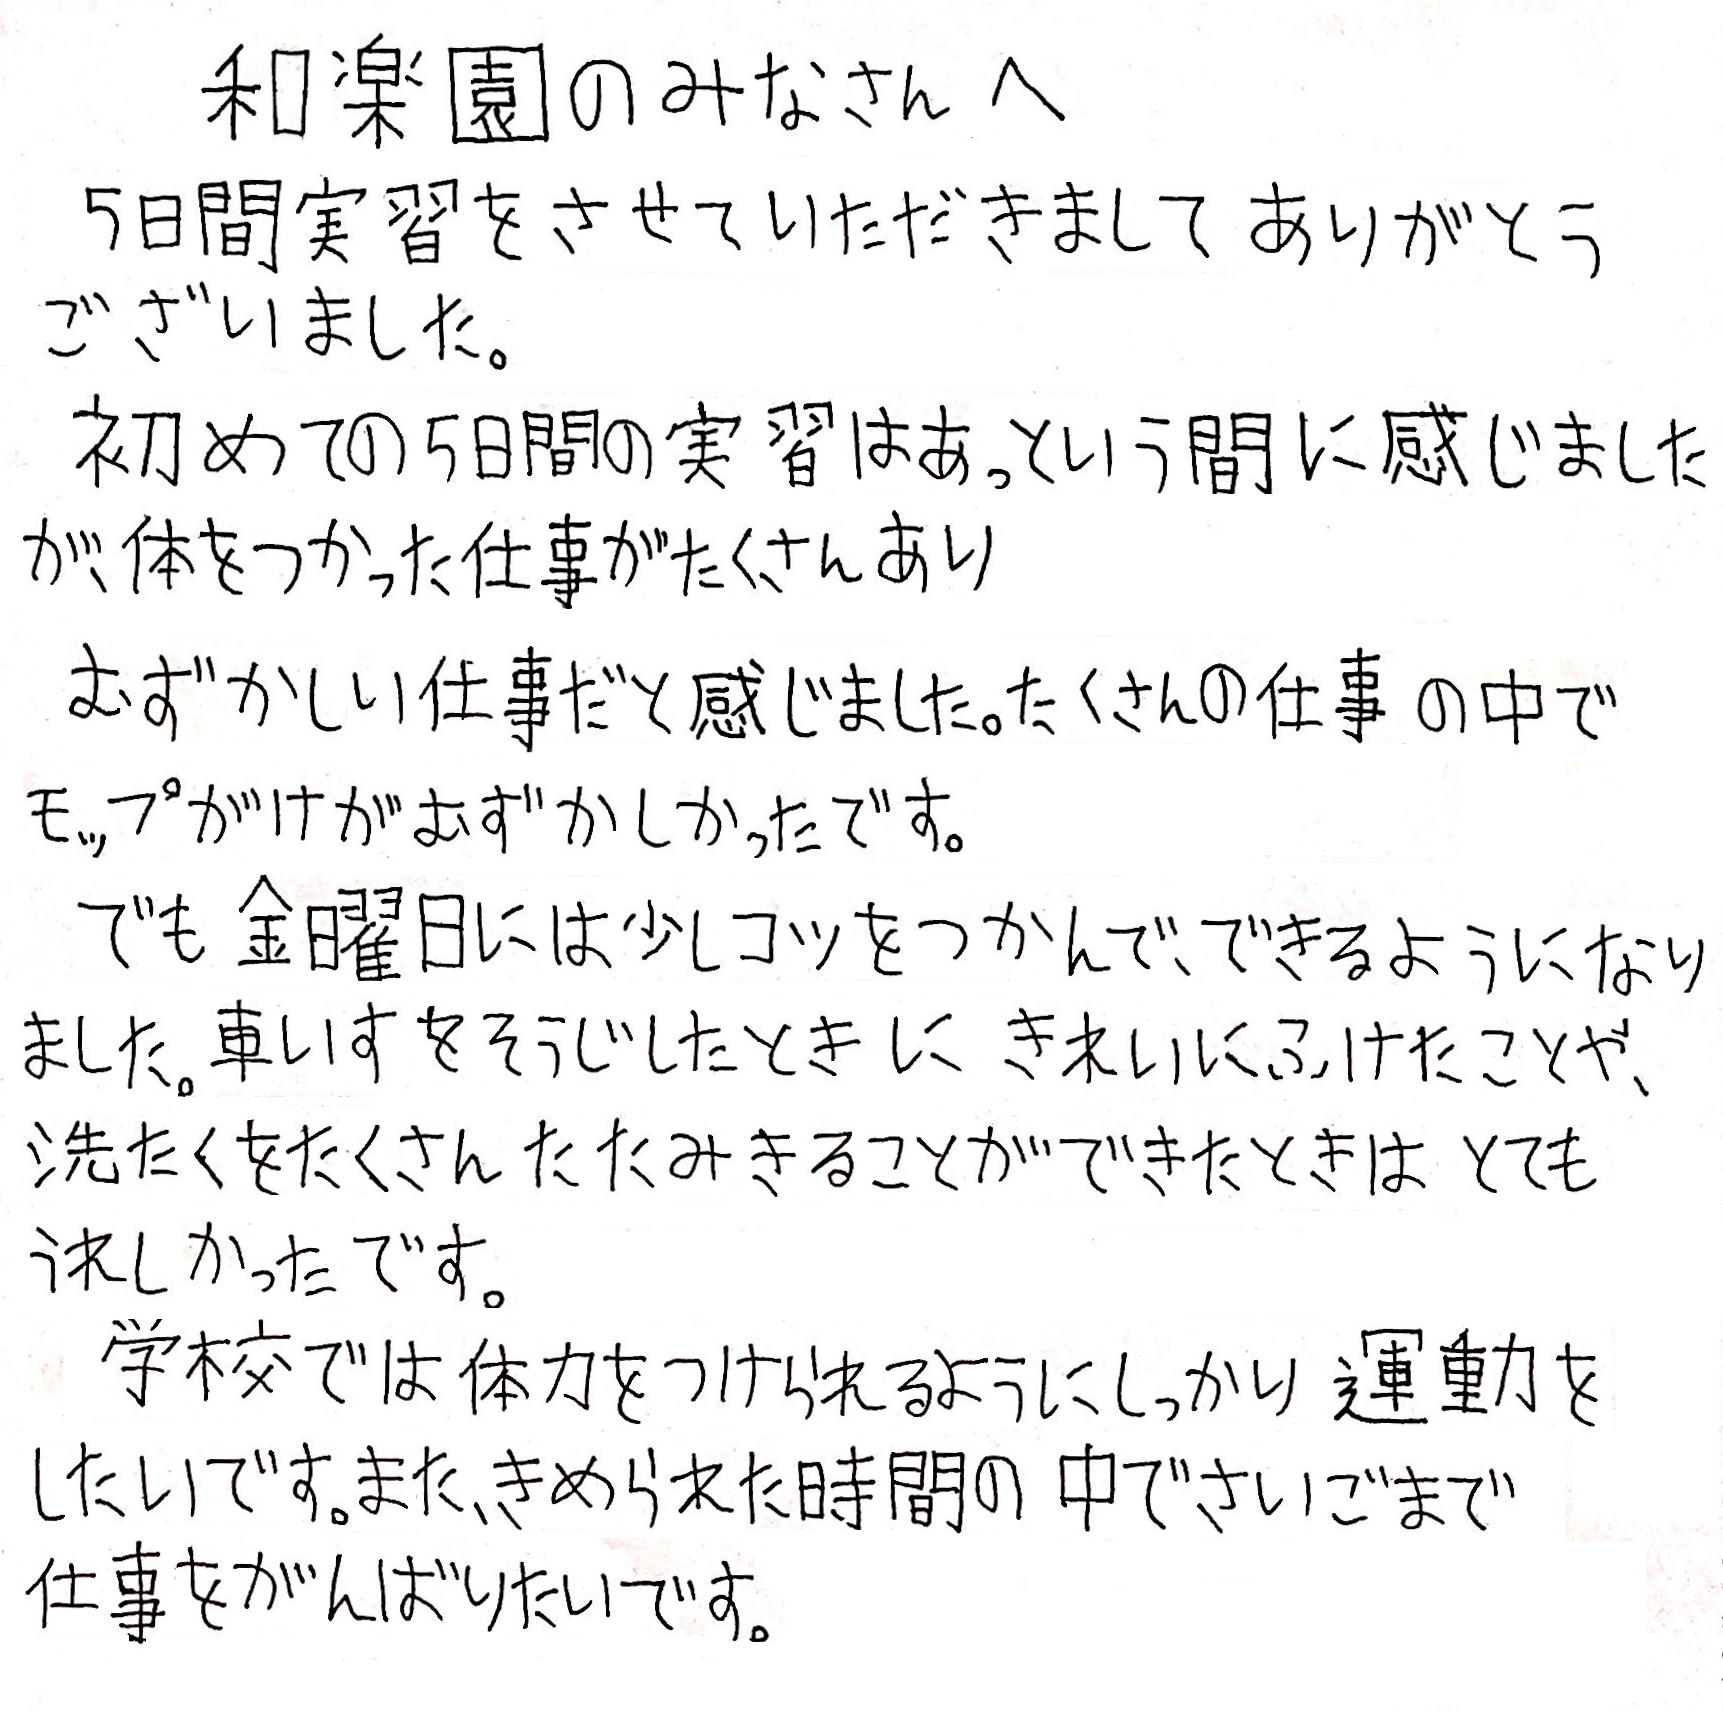 和楽園のみなさんへ
5日間実習をさせていただきましてありがとう
ございました。
初めての5日間の実習はあっという間に感じました
が、体をつかった仕事がたくさんあり
むずかしい仕事だと感じました。たくさんの仕事の中で
モップがけがむずかしかったです。
でも金曜日には少しコツをつかんで、できるようになり
ました。車いすをそうじしたときにきれいにふけたことや、
洗たくをたくさんたたみきることができたときはとても
うれしかったです。
学校では体力をつけられるようにしっかり運動を
したいです。また、きめられた時間の中でさいごまで
仕事をがんばりたいです。